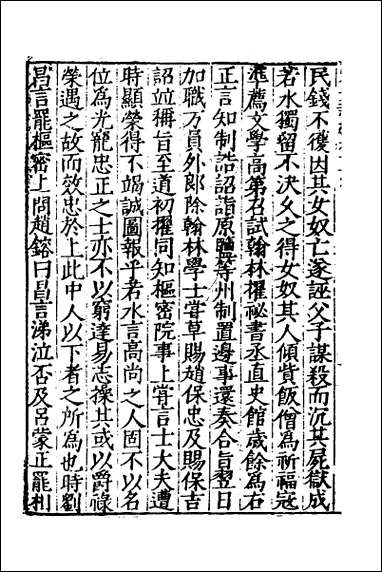 民錢不獲因其女奴亡遂誣父子謀殺而沉其屍獄成
若水獨留不決久之得女奴其人傾貲飯僧為祈福冠
準薦文學高第召試翰林擢祕書丞直史館歲餘為右
正言知制誥詔詣原鹽等州制置邊事還奏合旨翌日
加職方員外郎除翰林學士嘗草賜趙保忠及賜保吉
詔並稱旨至道初擢同知樞密院事上嘗言士大夫遭
時顯榮得不竭誠圖報乎若水言高尚之人固不以名
位為光寵忠正之士亦不以窮達易志操其或以爵祿
榮遇之故而效忠於上此中人以下者之所為也時劉
昌言罷樞密上問趙鎔曰昌言涕泣否及呂蒙正罷相